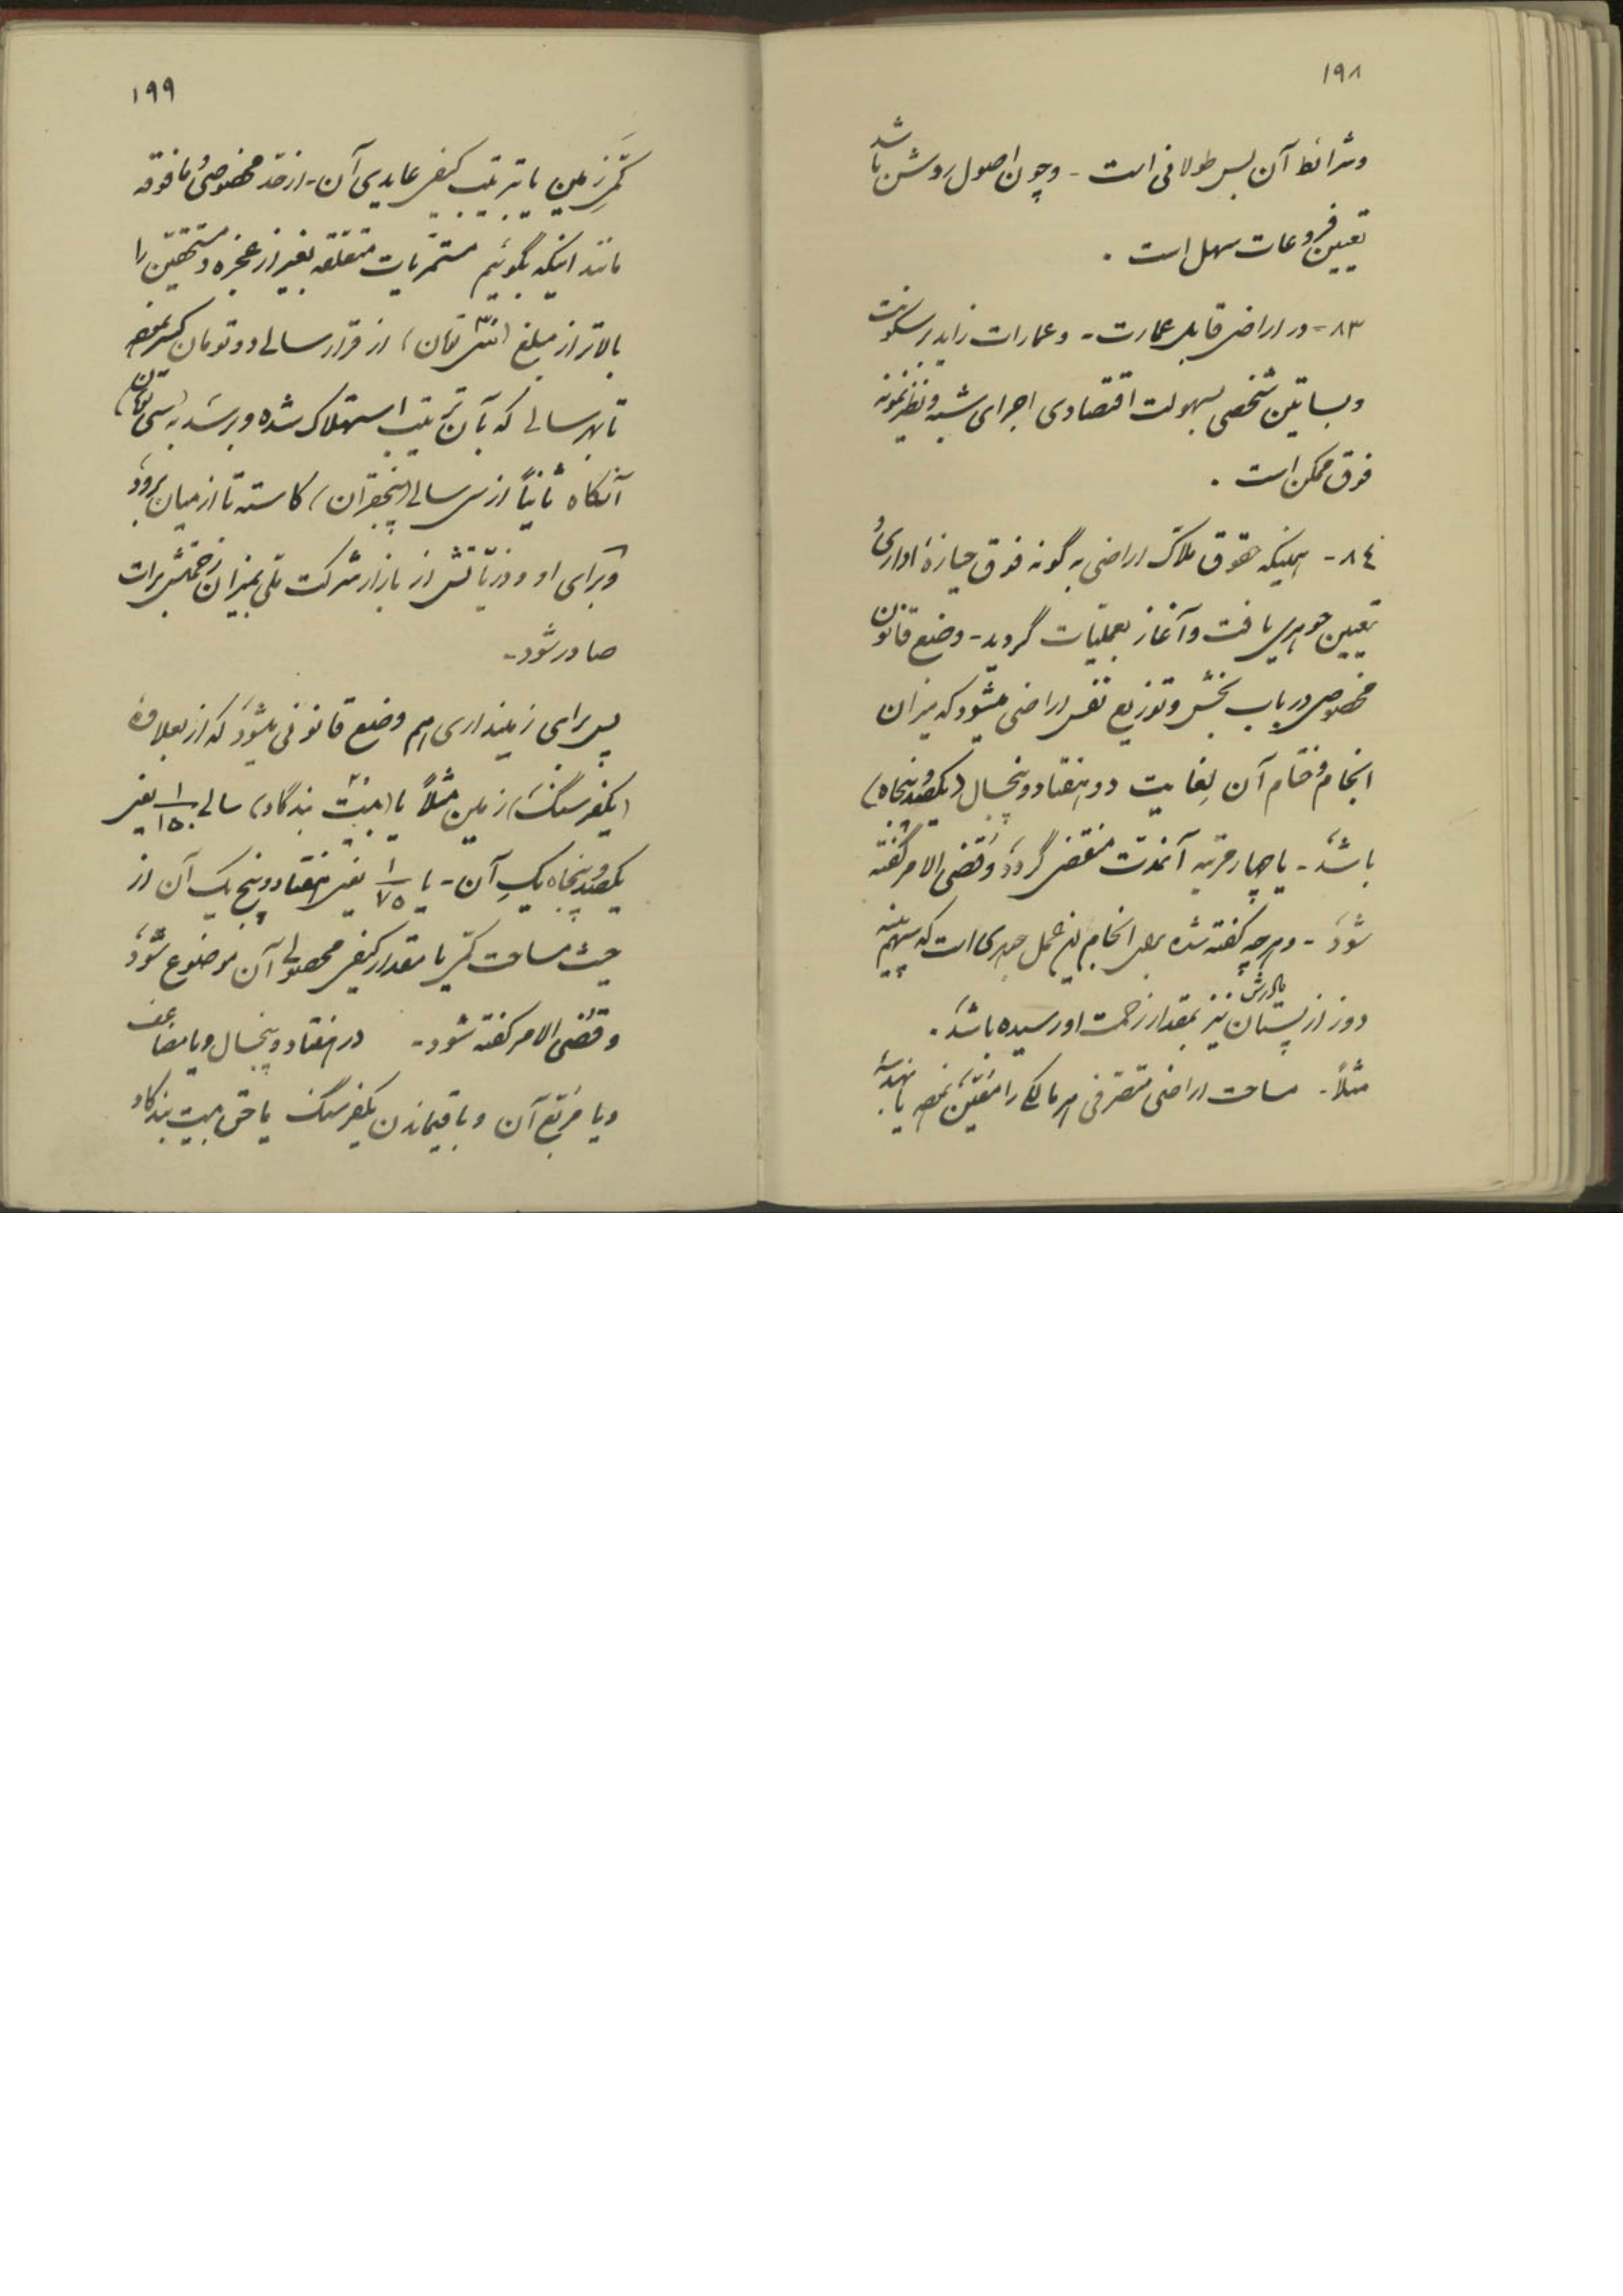 ١٩٨
وشرائط آن بس طولانی است - وچون اصول روشن باشد
تعیین فروعات سهل است .
٨٣ - در اراضی قابل عمارت - وعمارات زاید بر سکونت
وبساتین شخصی بسهولت اقتصادی اجرای شبه ونظیر نمونه
فوق ممکن است .
٨٤ - همینکه حقوق ملاک اراضی به گونه فوق حیازهٔ اداری
تعیین جوهری یافت وآغاز بعملیات گردید - وضع قانون
مخصوص در باب بخش وتوزیع نفس اراضی میشود که میزان
انجام وختام آن لغایت دو هفتاد وپنجسال (یکصد وپنجاه)
باشد - یا چهار مرتبه آنمدت منقضی گردد وقضی الامر گفته
شود - وهرچه گفته شده برای انجام این عمل جهدی است که
دوز از پستان نیز بمقدار زحمت اورسیده باشد .
مثلاً - مساحت اراضی متصرفی هر مالکی را معین نموده یا
١٩٩
کمّی زمین یا ترتیب کیفی عایدی آن - از حد مخصوصی مافوقه
مانند اینکه بگوئیم مستمریات متعلقه بغیر از عجزه ومستحقین را
بالاتر از مبلغ ( تومان) از قرار سالی دو تومان کسر نموده
تا بهر سالی که بآن ترتیب استهلاک شده وبرسد به (سی تومان)
آنگاه ثانیاً از سر سالی (پنجقران) کاسته تا از میان برود
وبرای او وذریاتش از بازار شرکت ملی بمیزان زحمتش برات
صادر شود -
پس برای زمینداری هم وضع قانونی میشود که از بعلاوهٔ
(یکفرسنگ) زمین مثلاً یا (بیست بندگاو) سالی ١/١٥٠ یعنی
یکصد وپنجاه یکِ آن - یا ١/٧٥ یعنی هفتاد وپنج یک آن از
حیث مساحت کمّی یا مقدار کیفی محصولی آن موضوع شود
وقضی الامر گفته شود - در هفتاد وپنجسال ویا مضاعف
ویا مربع آن وباقیماندن یکفرسنگ یا حق بیست بندگاو